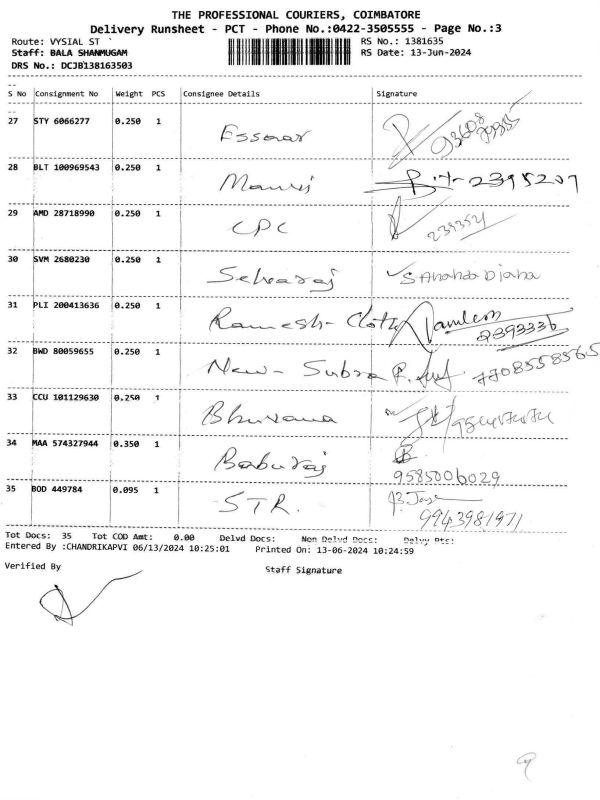 THE PROFESSIONAL COURIERS, COIMBATORE
Delivery Runsheet - PCT - Phone No.:0422-3505555 - Page No.:3
Route: VYSIAL ST RS No.: 1381635
Staff: BALA SHANMUGAM RS Date: 13-Jun-2024
DRS No.: DCJB138163503
S No Consignment No Weight PCS Consignee Details Signature
27 STY 6066277 0.250 1 Essaar
28 BLT 100969543 0.250 1 2395207
29 AMD 28718990 0.250 1 CPC 239352
30 SVM 2680230 0.250 1 Selvaraj
31 PLI 200413636 0.250 1 Ramesh- Cloth 2393336
32 BWD 80059655 0.250 1 New- Subra P. 7708558565
33 CCU 101129630 0.250 1 Bhuvana
34 MAA 574327944 0.350 1 Baburaj 9585006029
35 BOD 449784 0.095 1 STR. 9943981971
Tot Docs: 35 Tot COD Amt: 0.00 Delvd Docs: Non Delvd Docs: Delvy Pts:
Entered By :CHANDRIKAPVI 06/13/2024 10:25:01 Printed On: 13-06-2024 10:24:59
Verified By Staff Signature